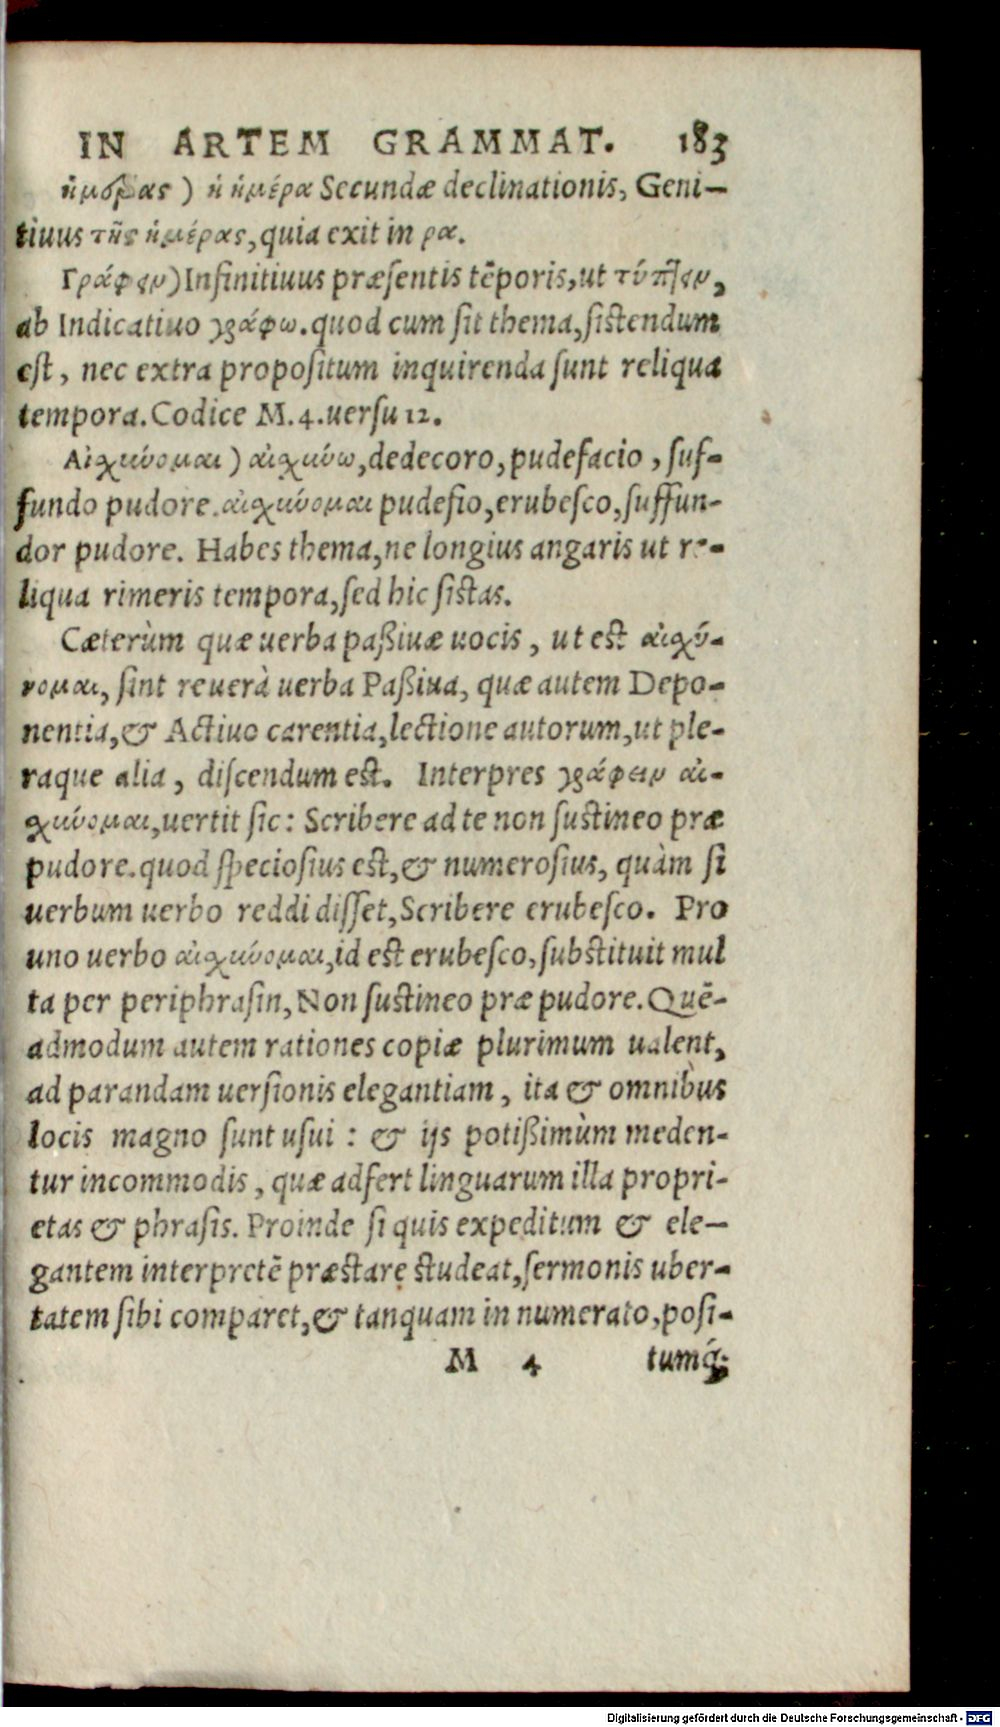 IN ARTEM GRAMMAT. 183
ἡμέρας ) ἡ ἡμέρα Secundæ declinationis, Geni-
tiuus τῆς ἡμέρας, quia exit in ρα.
Γράφειν) Infinitiuus præsentis tēporis, ut τύπτειν,
ab Indicatiuo γράφω. quod cum sit thema, sistendum
est, nec extra propositum inquirenda sunt reliqua
tempora. Codice M. 4. uersu 12.
Αἰσχύνομαι ) αἰσχύνω, dedecoro, pudefacio, suf-
fundo pudore. αἰσχύνομαι pudefio, erubesco, suffun-
dor pudore. Habes thema, ne longius angaris ut re-
liqua rimeris tempora, sed hic sistas.
Cæterùm quæ uerba paßiuæ uocis, ut est αἰσχύ-
νομαι, sint reuerà uerba Paßiua, quæ autem Depo-
nentia, & Actiuo carentia, lectione autorum, ut ple-
raque alia, discendum est. Interpres γράφειν αἰ-
σχύνομαι, uertit sic: Scribere ad te non sustineo præ
pudore. quod speciosius est, & numerosius, quàm si
uerbum uerbo reddidisset, Scribere erubesco. Pro
uno uerbo αἰσχύνομαι, id est erubesco, substituit mul
ta per periphrasin, Non sustineo præ pudore. Quē-
admodum autem rationes copiæ plurimum ualent,
ad parandam uersionis elegantiam, ita & omnibus
locis magno sunt usui: & ijs potißimùm meden-
tur incommodis, quæ adfert linguarum illa propri-
etas & phrasis. Proinde si quis expeditum & ele-
gantem interpretē præstare studeat, sermonis uber-
tatem sibi comparet, & tanquam in numerato, posi-
M 4 tumq́;
Digitalisierung gefördert durch die Deutsche Forschungsgemeinschaft - DFG